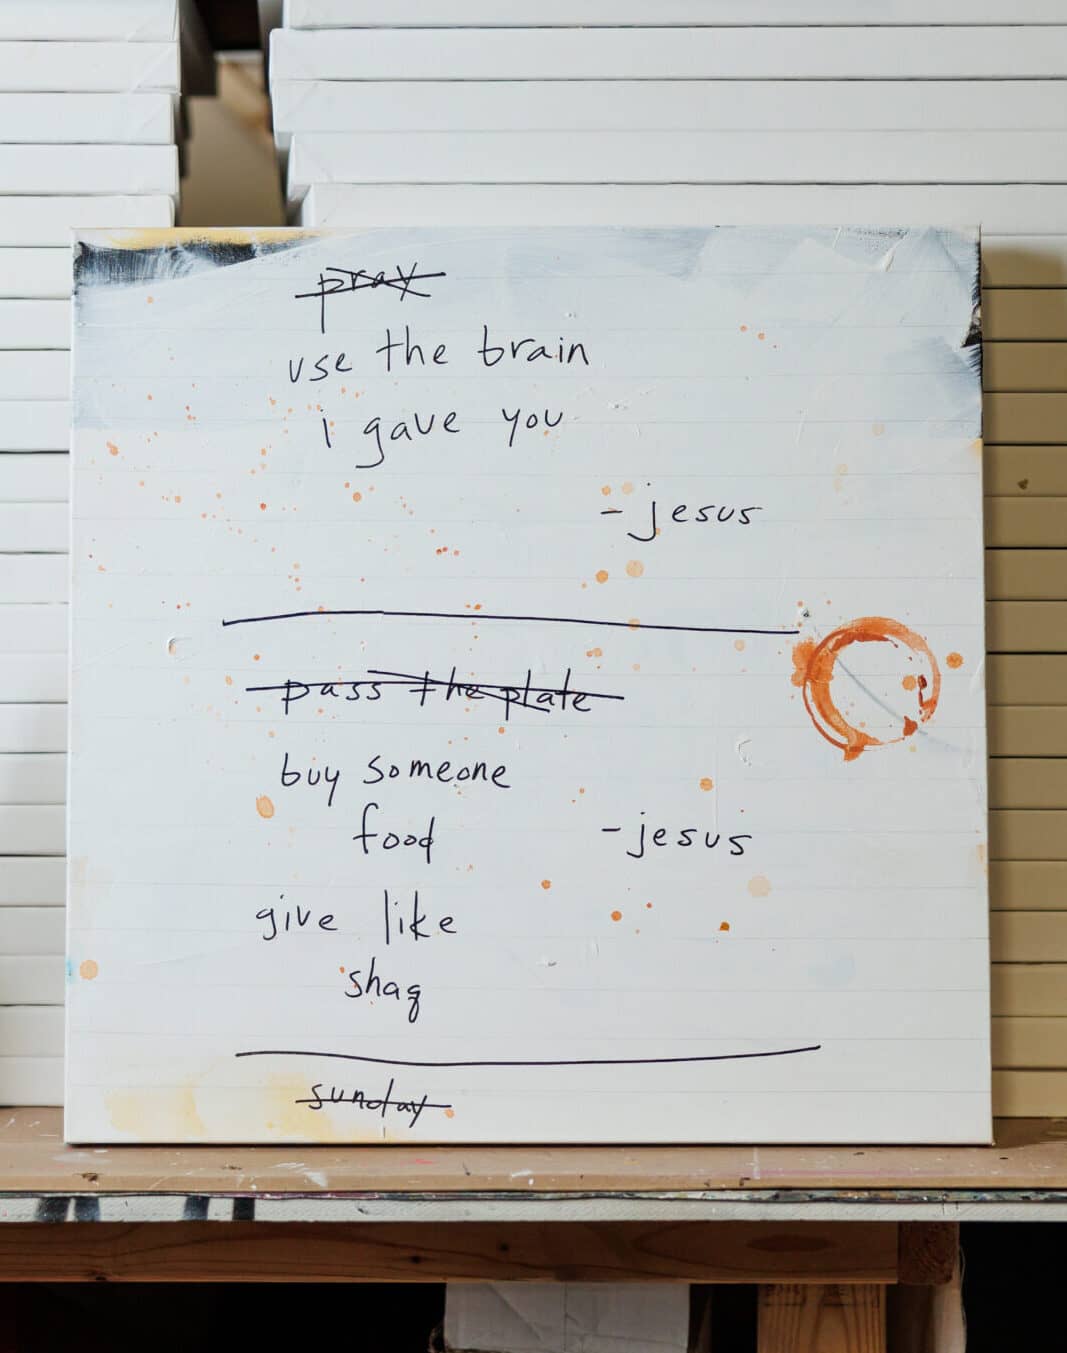 pray
use the brain
i gave you
- jesus
pass the plate
buy someone
food - jesus
give like
shaq
sunday